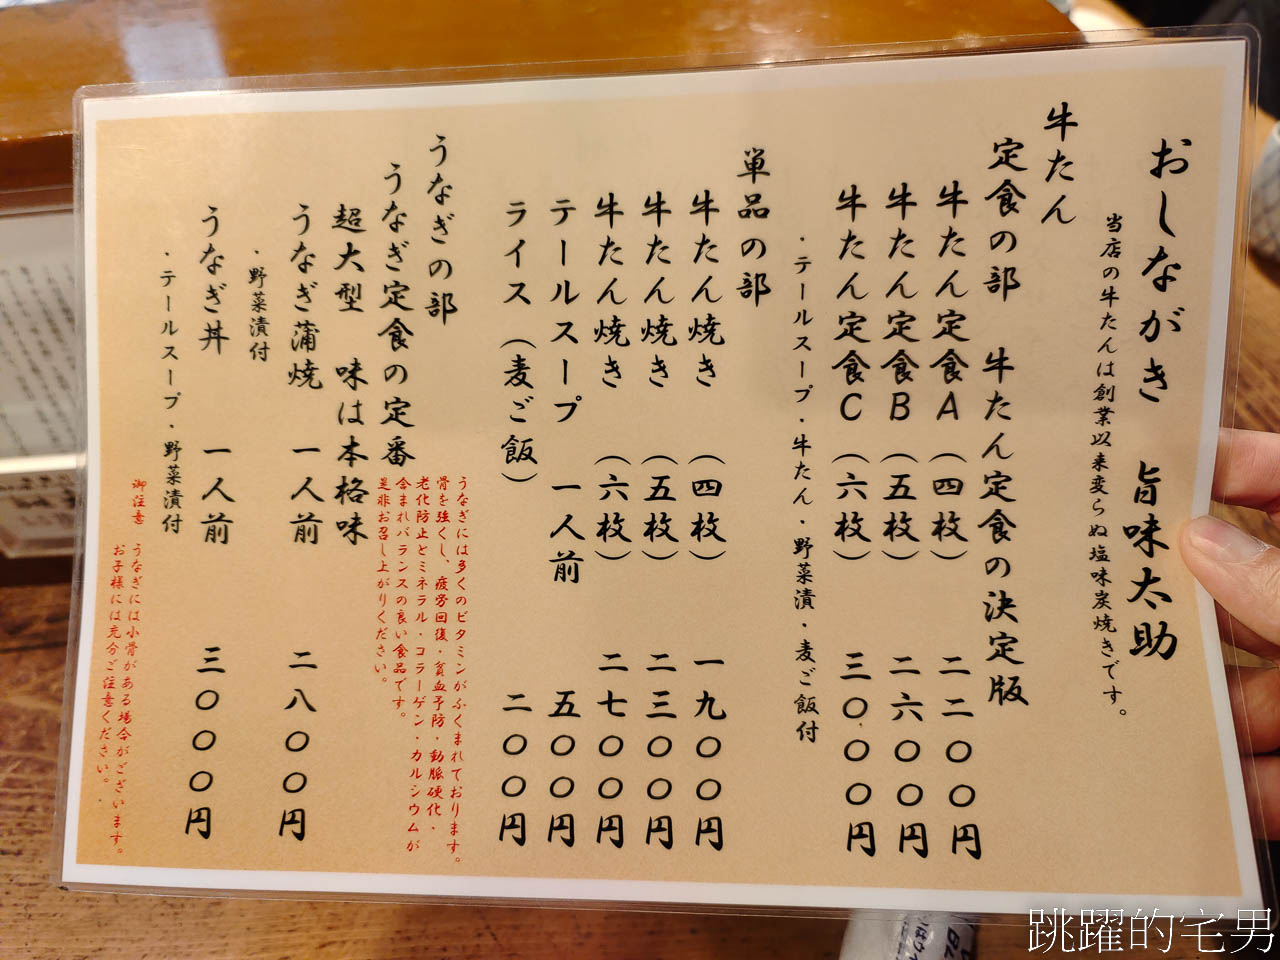 おしながき 旨味太助
当店の牛たんは創業以来変らぬ塩味炭焼きです。
牛たん
定食の部 牛たん定食の決定版
牛たん定食A（四枚） 二二〇〇円
牛たん定食B（五枚） 二六〇〇円
牛たん定食C（六枚） 三〇〇〇円
・テールスープ・牛たん・野菜漬・麦ご飯付
単品の部
牛たん焼き （四枚） 一九〇〇円
牛たん焼き （五枚） 二三〇〇円
牛たん焼き （六枚） 二七〇〇円
テールスープ 一人前 五〇〇円
ライス（麦ご飯） 二〇〇円
うなぎの部
うなぎ定食の定番
超大型 味は本格味
うなぎには多くのビタミンがふくまれております。
骨を強くし、疲労回復・貧血予防・動脈硬化・
老化防止とミネラル・コラーゲン・カルシウムが
含まれバランスの良い食品です。
是非お召し上がりください。
うなぎ蒲焼 一人前 二八〇〇円
・野菜漬付
うなぎ丼 一人前 三〇〇〇円
・テールスープ・野菜漬付
御注意 うなぎには小骨がある場合がございます。
お子様には充分ご注意ください。
跳躍的宅男